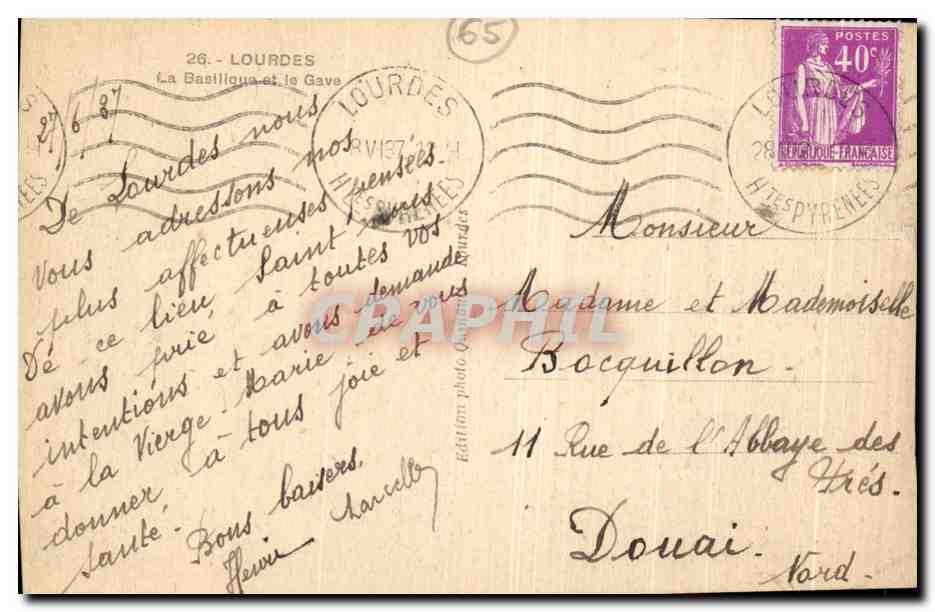 65
26. - LOURDES
La Basilique et le Gave
27/6/37
De Lourdes nous
vous adressons nos
plus affectueuses pensées.
Dé ce lieu Saint nous
avons prié à toutes vos
intentions et avons demandé
à la Vierge Marie de vous
donner à tous joie et
santé.
Bons baisers.
Marcelle
Edition photo Lourdes
LOURDES
Htes PYRENEES
POSTES
40c
REPUBLIQUE FRANÇAISE
LOURDES
28
Htes PYRENEES
CPAPHIL
Monsieur
Madame et Mademoiselle
Bocquillon.
11 Rue de l'Abbaye des
Prés.
Douai.
Nord.